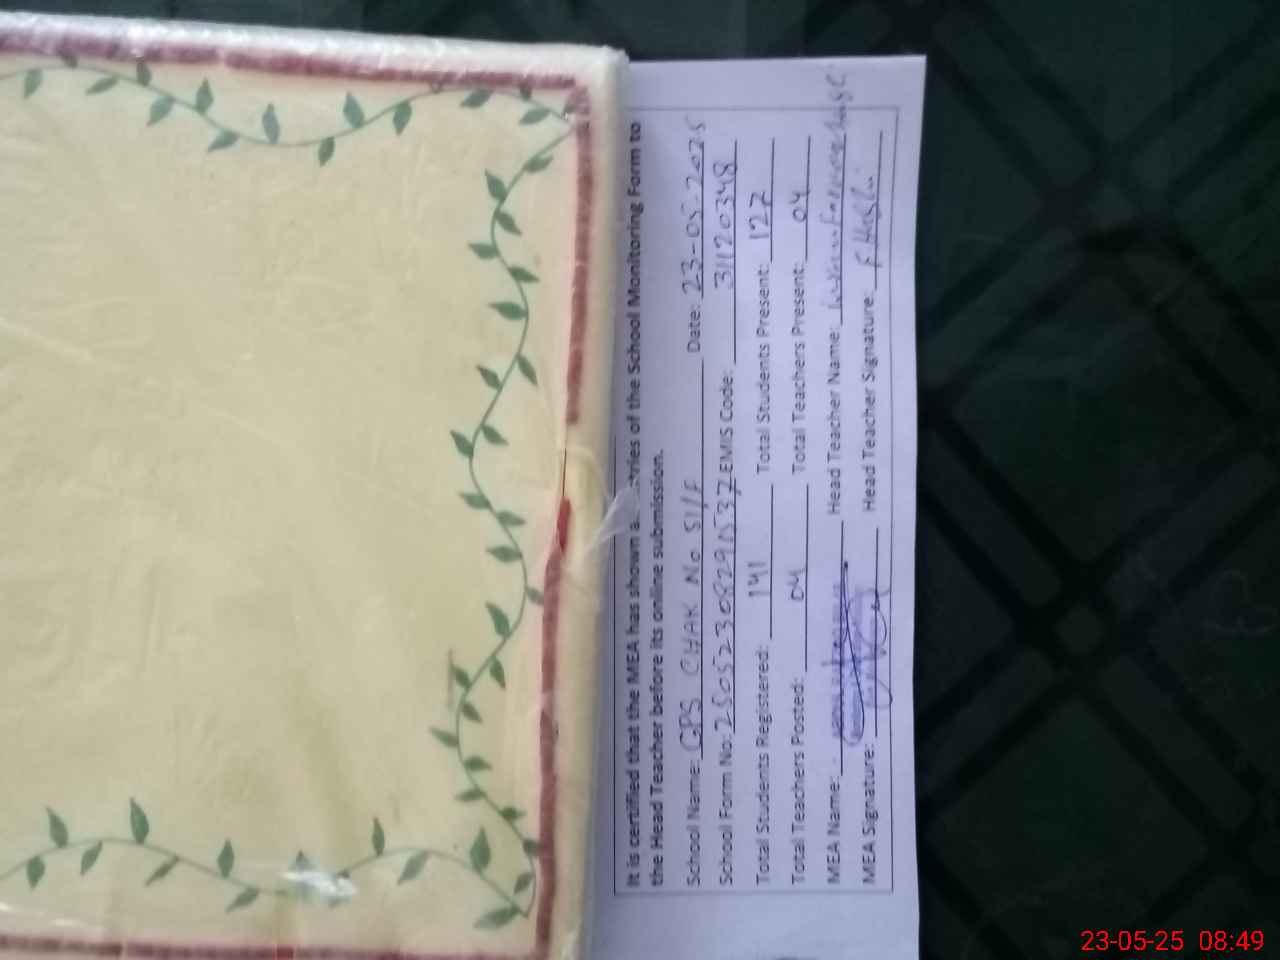 It is certified that the MEA has shown a tries of the School Monitoring Form to
the Head Teacher before its online submission.
School Name: GPS CHAK No 51/F Date: 23-05-2025
School Form No: EMIS Code: 31120348
Total Students Registered: 141 Total Students Present: 127
Total Teachers Posted: 04 Total Teachers Present: 04
MEA Name: Head Teacher Name:
MEA Signature: Head Teacher Signature:
23-05-25 08:49